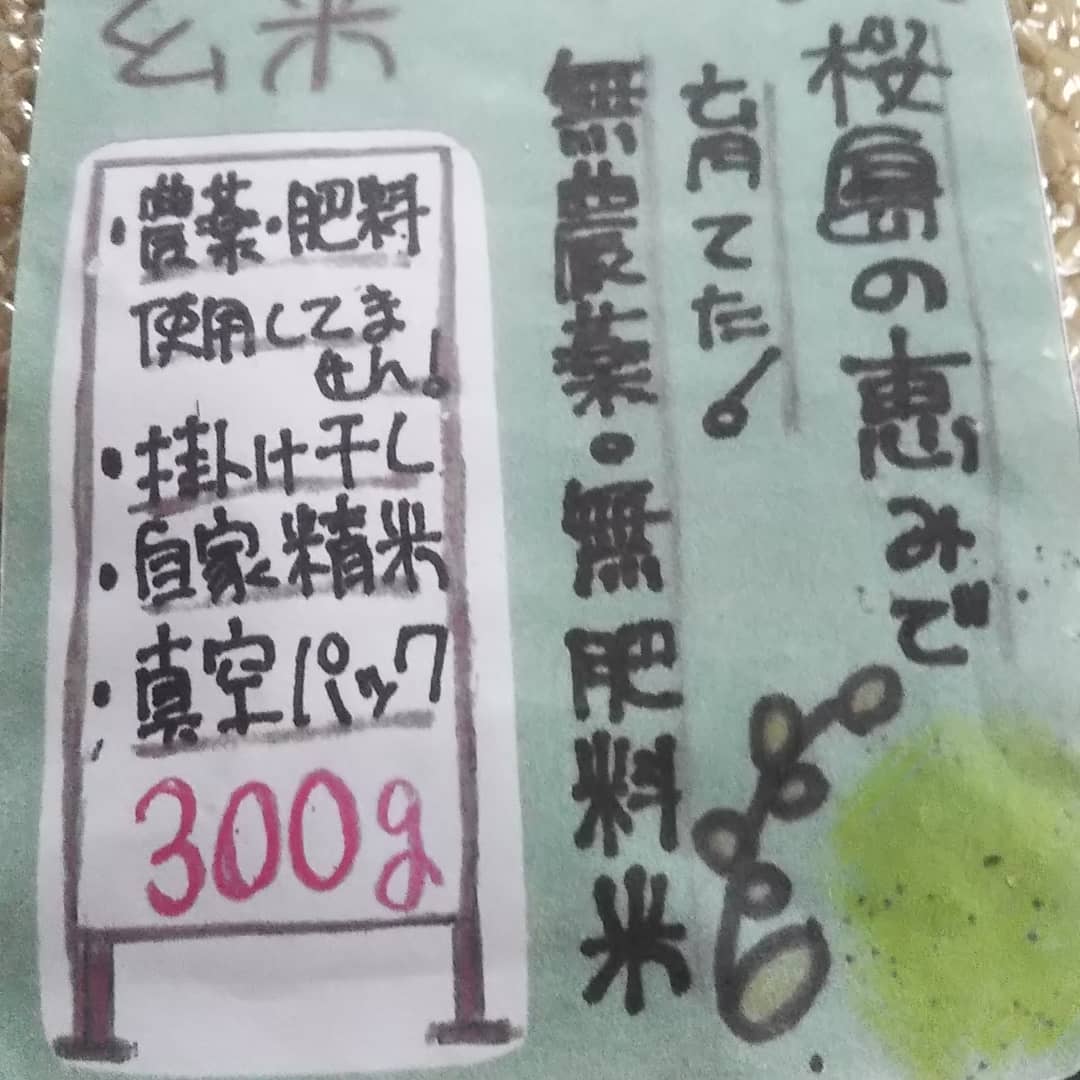 玄米
桜島の恵みで
育てた!
無農薬・無肥料米
・農薬・肥料
使用してま
せん!
・掛け干し
・自家精米
・真空パック
300g